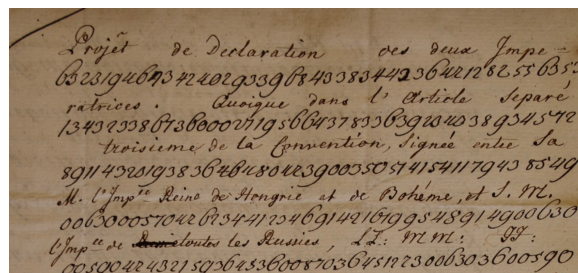 Projèt de Declaration des deux Impe-
6323194673424029339684338344236421282556353
ratrices. Quoique dans l'Article Separé
134323386736000271956643783363923423893457 2
troisieme de la Convention, Signée entre Sa
89114320193836464804239003505141541179438549
M. l'Impce Reine de Hongrie et de Bohéme, et S. M.
00630005704262344123469142167995489149006 30
l'Impce de toutes les Russies, LL: MM: II: